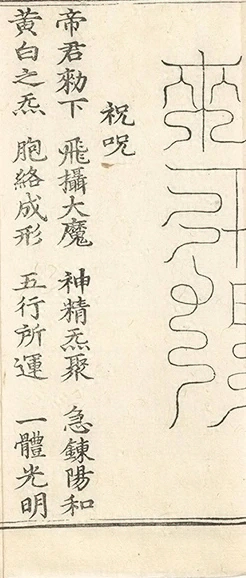 祝呪
帝君勑下 飛攝大魔 神精炁聚 急錬陽和
黃白之炁 胞絡成形 五行所運 一體光明